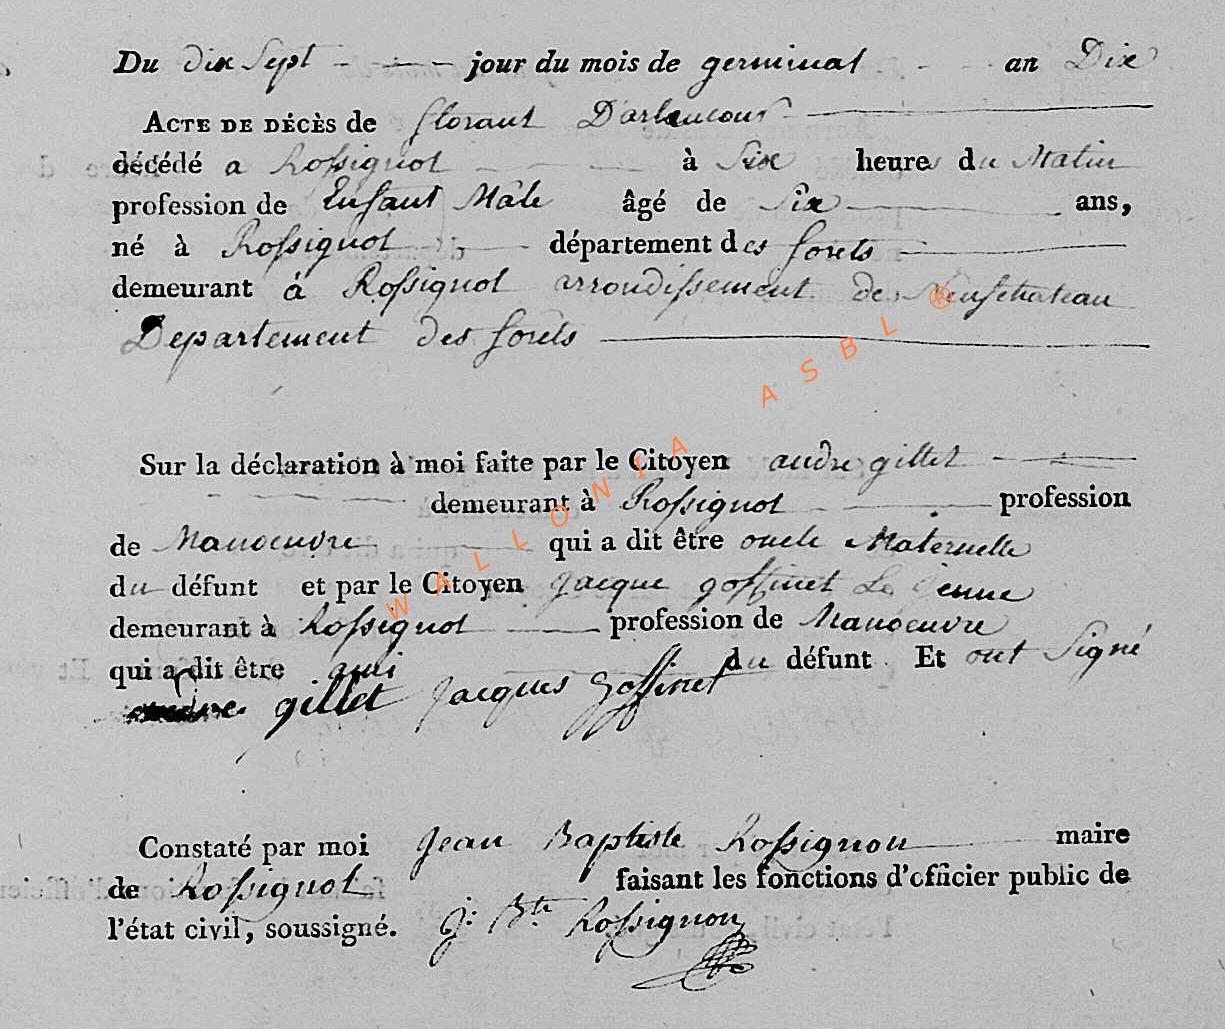 Du dix Sept jour du mois de germinal an Dix
ACTE DE DÉCÈS de florant D'arlancour
décédé a Rossignol à Six heures du Matin
profession de Enfant Mâle âgé de Six ans,
né à Rossignol département des forets
demeurant á Rossignol arrondissement de Neufchateau
Departement des forêts
Sur la déclaration à moi faite par le Citoyen andre gillet
demeurant à Rossignol profession
de Manoeuvre qui a dit être oncle Maternelle
du défunt et par le Citoyen Jacque goffinet Le Jenne
demeurant à Rossignol profession de Manoeuvre
qui a dit être ami du défunt. Et ont Signé
andre gillet Jacques goffinet
Constaté par moi Jean Baptiste Rossignon maire
de Rossignol faisant les fonctions d'officier public de
l'état civil, soussigné. J: Bte Rossignon
WALLONIA ASBL ®